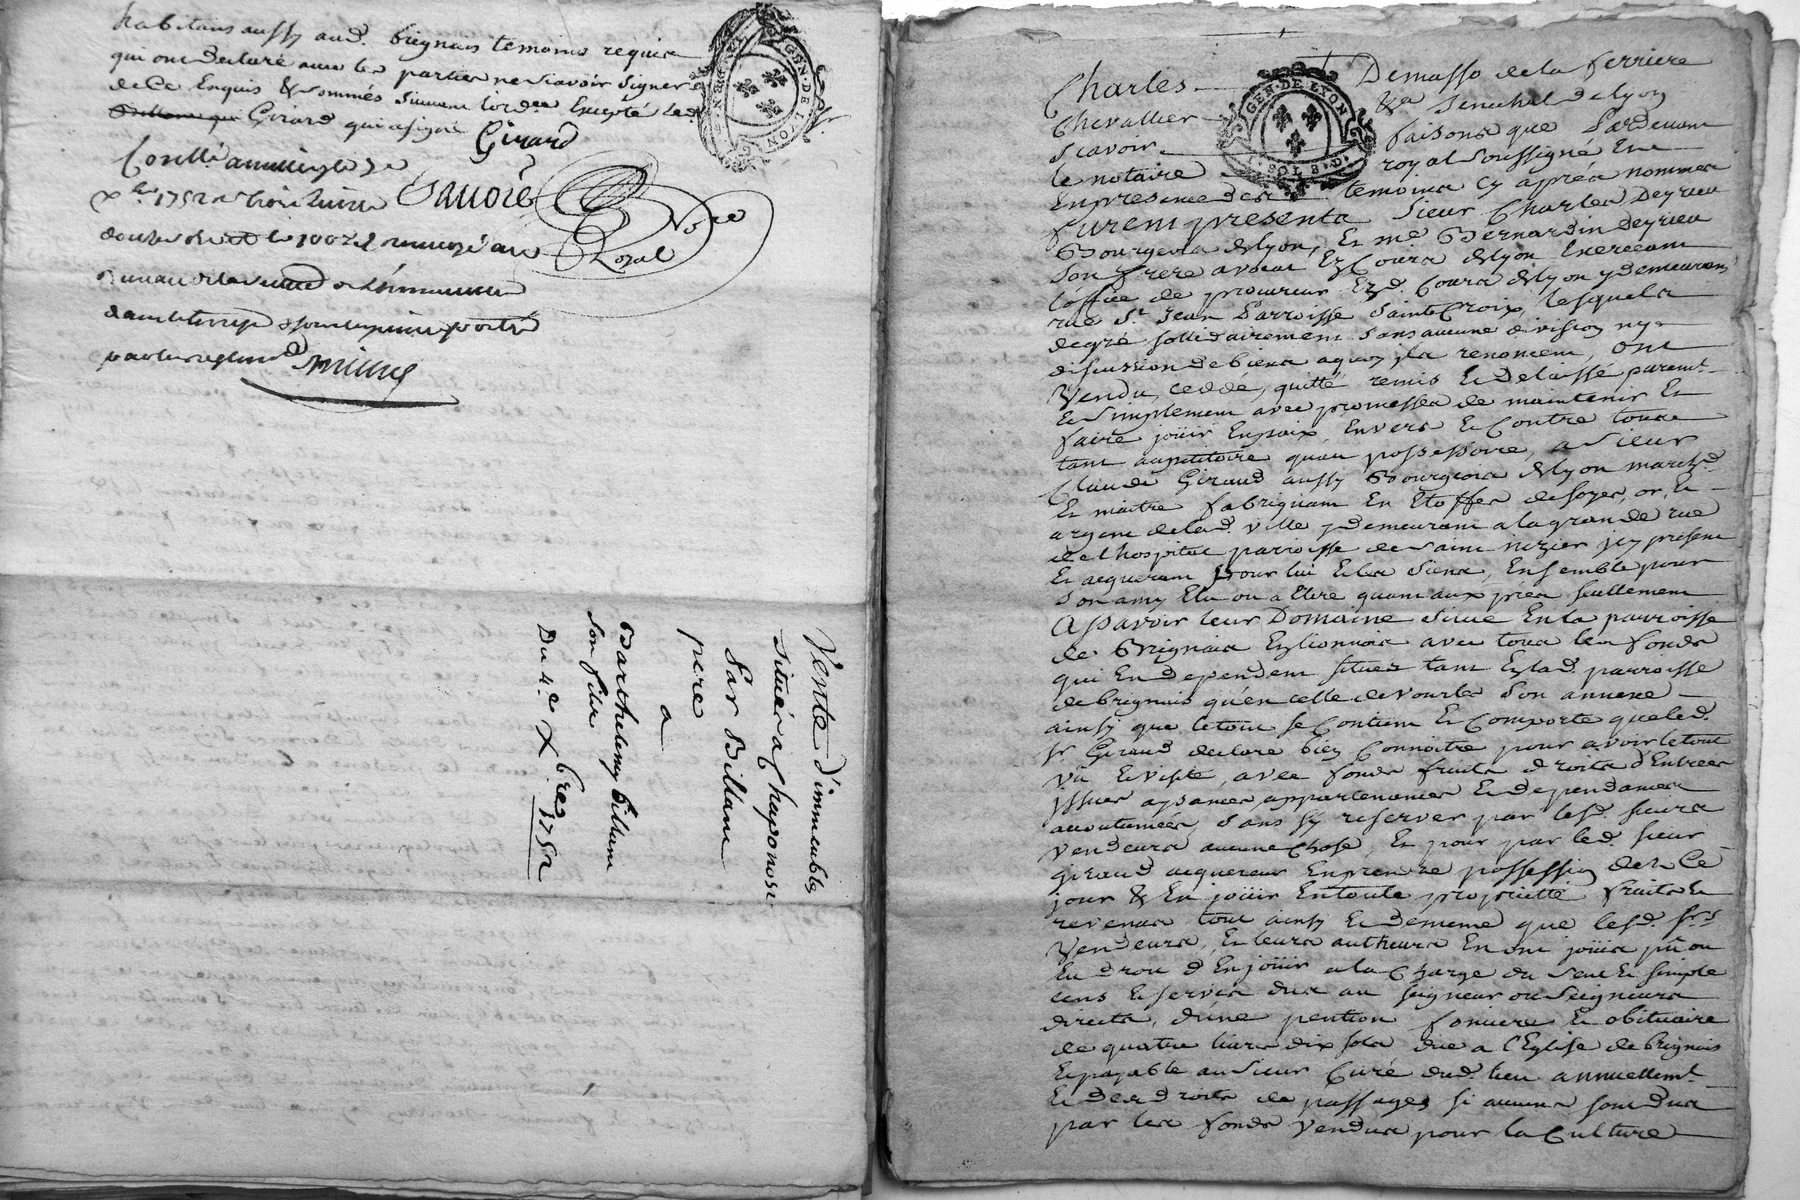 habitans aussy aud. brignais temoins requis
qui ont declaré avec les parties ne sçavoir signer
de ce Enquis & sommés suivant l'ord.ce Excepté led.
Girard qui a signé Girard
Controllé a
xbre 1752 Royal
Vente d'immeubles
situés a Chaponost
Par Billam
pere
a
Barthelemy billam
son fils
Du 4e Xbre 1752
GEN. DE LYON
Charles Demasso de la ferriere
Chevallier &a Senechal de lyon
Scavoir faisons que Pardevant
le notaire royal soussigné Et
En presence des temoins cy aprés nommés
furent presents Sieur Charles Deyrieu
Bourgeois de lyon, Et me Bernardin Deyrieu
son frere avocat Ez Cours de lyon Exerceant
l'office de procureur Ezd. Cours de lyon y demeurans
rue St Jean Parroisse Sainte Croix, lesquels
de gré sollidairement sans aucune division ny
discussion de biens a quoy ils renoncent, ont
Vendu, cedde, quitté remis Et Delaissé puremt
Et simplement avec promesses de maintenir Et
faire joüir En paix, Envers Et Contre tous
tant au petitoire qu'au possessoire, a Sieur
Claude Giraud aussy Bourgeois de lyon marchd
Et maitre fabriquant En Etoffes de soyes, or, Et
argent de lad. Ville y demeurant a la grande rue
de l'hospital parroisse de Saint nizier icy present
Et acquerant pour lui Et les Siens, Ensemble pour
son amy Elu ou a Elire quant aux prés seullement
Asçavoir leur Domaine situé En la parroisse
de Brignais En lionnois avec tous les fonds
qui En dependent situés tant En lad. parroisse
de brignais qu'en celle de vourles son annexe
ainsy que le tout se Contient Et Comporte que led.
Sr Giraud declare bien Connoitre pour avoir le tout
vû Et visité, avec fonds fruits droits d'Entrées
issues aysances, appartenances Et dependances
acoutumées, sans s'y reserver par lesd. sieurs
Vendeurs aucune Chose, Et pour par led. sieur
giraud acquereur En prendre possession dez Ce
jour & En joüir En toute proprietté fruits Et
revenus tout ainsy Et de meme que lesd. srs
Vendeurs, Et leurs autheurs En ont joüis pû ou
Eu droit d'En joüir a la Charge du seul Et simple
cens Et servis dus au seigneur ou Seigneurs
directs, d'une pention fonciere Et obituaire
de quatre livres dix sols due a l'Eglise de brignais
Et payable au Sieur Curé dud. lieu annuellemt
Et des droits de passages si aucuns sont dus
par les fonds Vendus pour la Culture